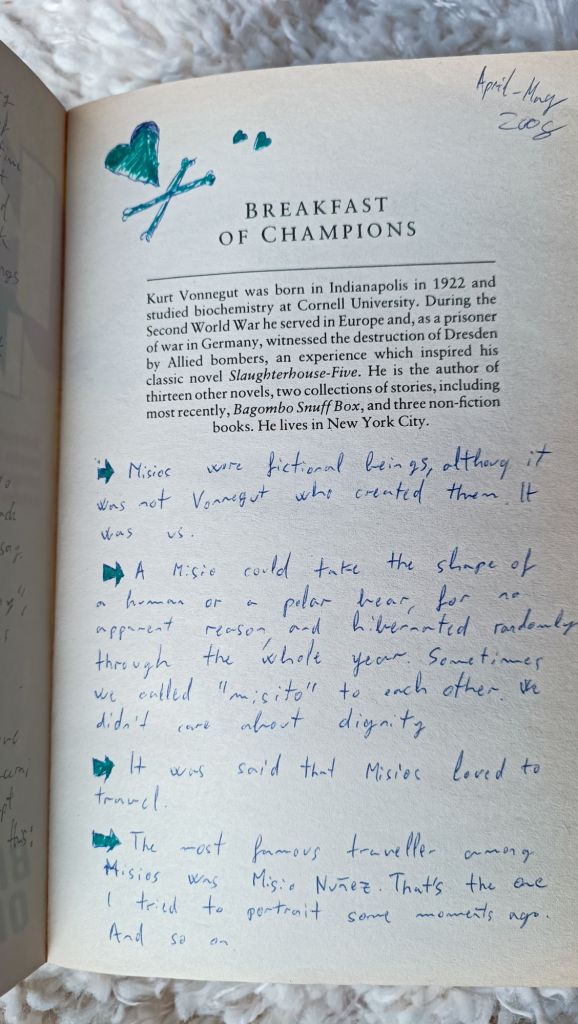 April-May
2008
BREAKFAST
OF CHAMPIONS
Kurt Vonnegut was born in Indianapolis in 1922 and
studied biochemistry at Cornell University. During the
Second World War he served in Europe and, as a prisoner
of war in Germany, witnessed the destruction of Dresden
by Allied bombers, an experience which inspired his
classic novel Slaughterhouse-Five. He is the author of
thirteen other novels, two collections of stories, including
most recently, Bagombo Snuff Box, and three non-fiction
books. He lives in New York City.
Misios were fictional beings, althoug it
was not Vonnegut who created them. It
was us.
A Misio could take the shape of
a human or a polar bear, for no
apparent reason, and hibernated randomly
through the whole year. Sometimes
we called "misito" to each other. We
didn't care about dignity
It was said that Misios loved to
travel.
The most famous traveller among
Misios was Misio Nuñez. That's the one
I tried to portrait some moments ago.
And so on